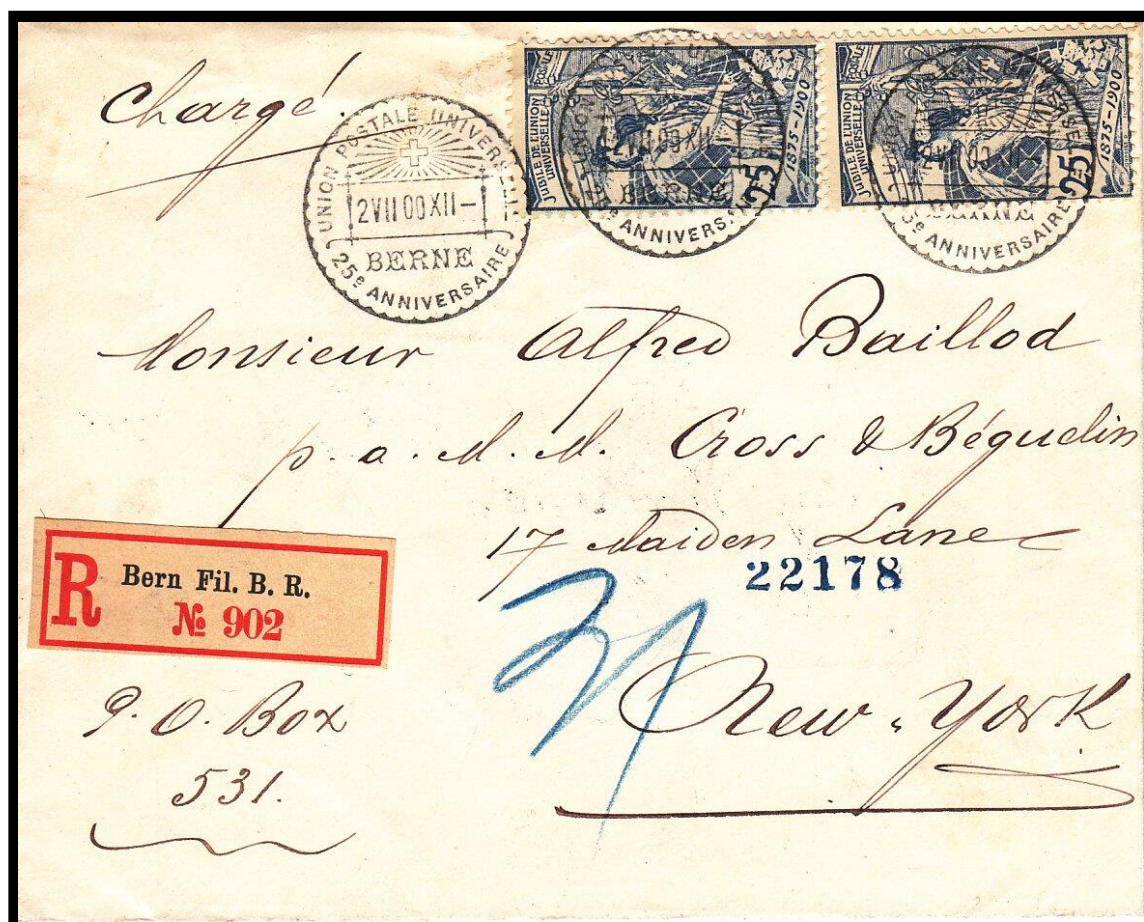 Chargé.
UNION POSTALE UNIVERSELLE
2 VII 00 XII –
BERNE
25e ANNIVERSAIRE
JUBILÉ DE L'UNION POSTALE
UNIVERSELLE
25
1875-1900
BERNE
25e ANNIVERSAIRE
JUBILÉ DE L'UNION POSTALE
UNIVERSELLE
25
1875-1900
BERNE
25e ANNIVERSAIRE
Monsieur Alfred Baillod
p. a. M. M. Cross & Béguelin
17 Maiden Lane
22178
R Bern Fil. B. R.
№ 902
P. O. Box
531.
New-York